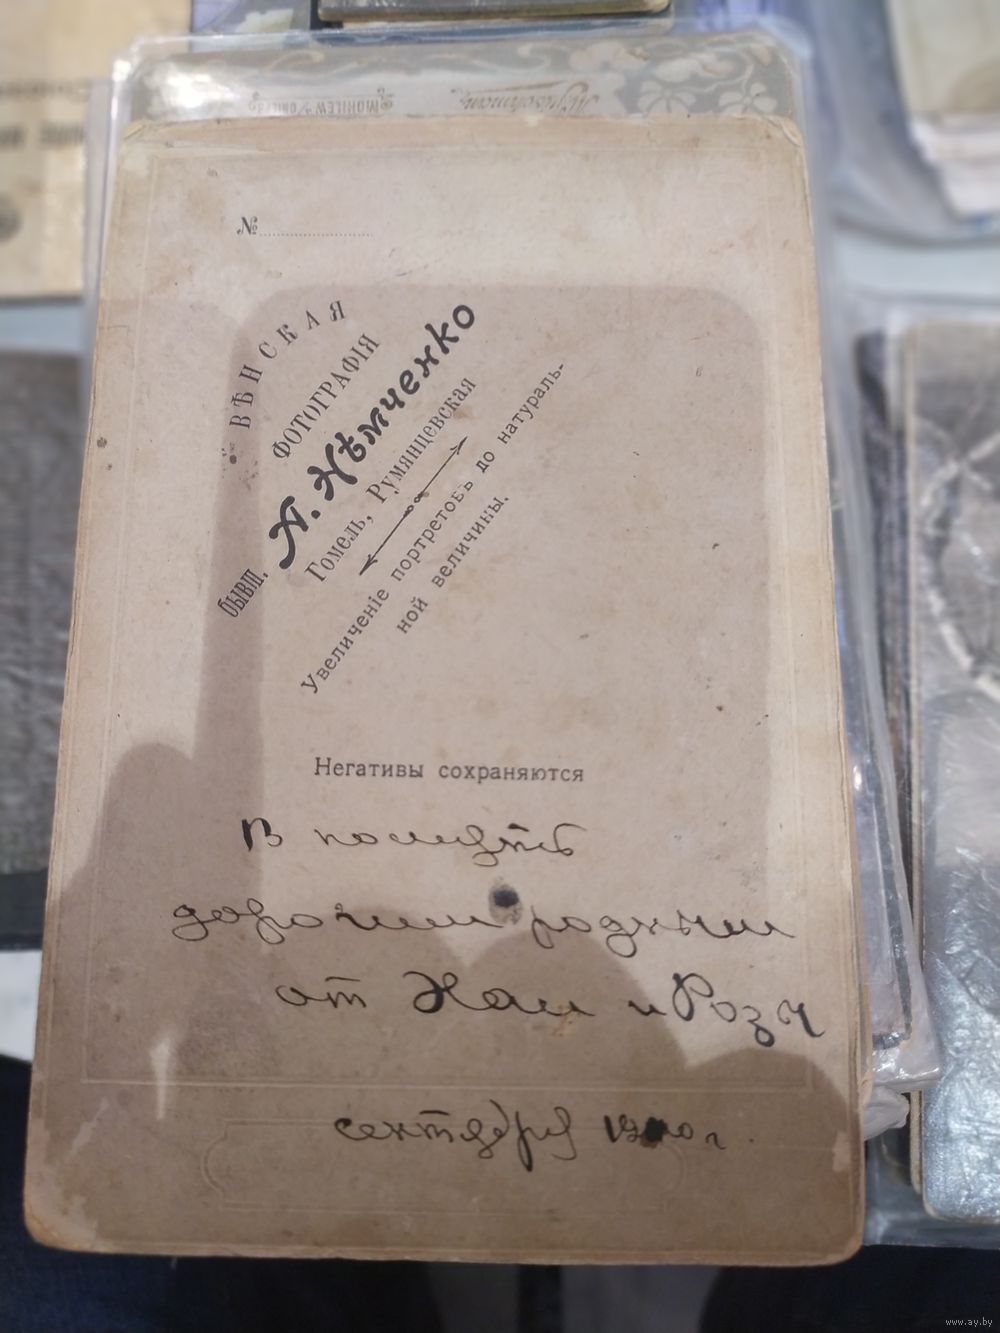 MOHILEW
№
ВѢНСКАЯ
ФОТОГРАФІЯ
бывш. А. Нѣмченко
Гомель, Румянцевская
Увеличеніе портретовъ до натураль-
ной величины.
Негативы сохраняются
В память
дорогим родным
от и Розы
сентября г.
www.ay.by